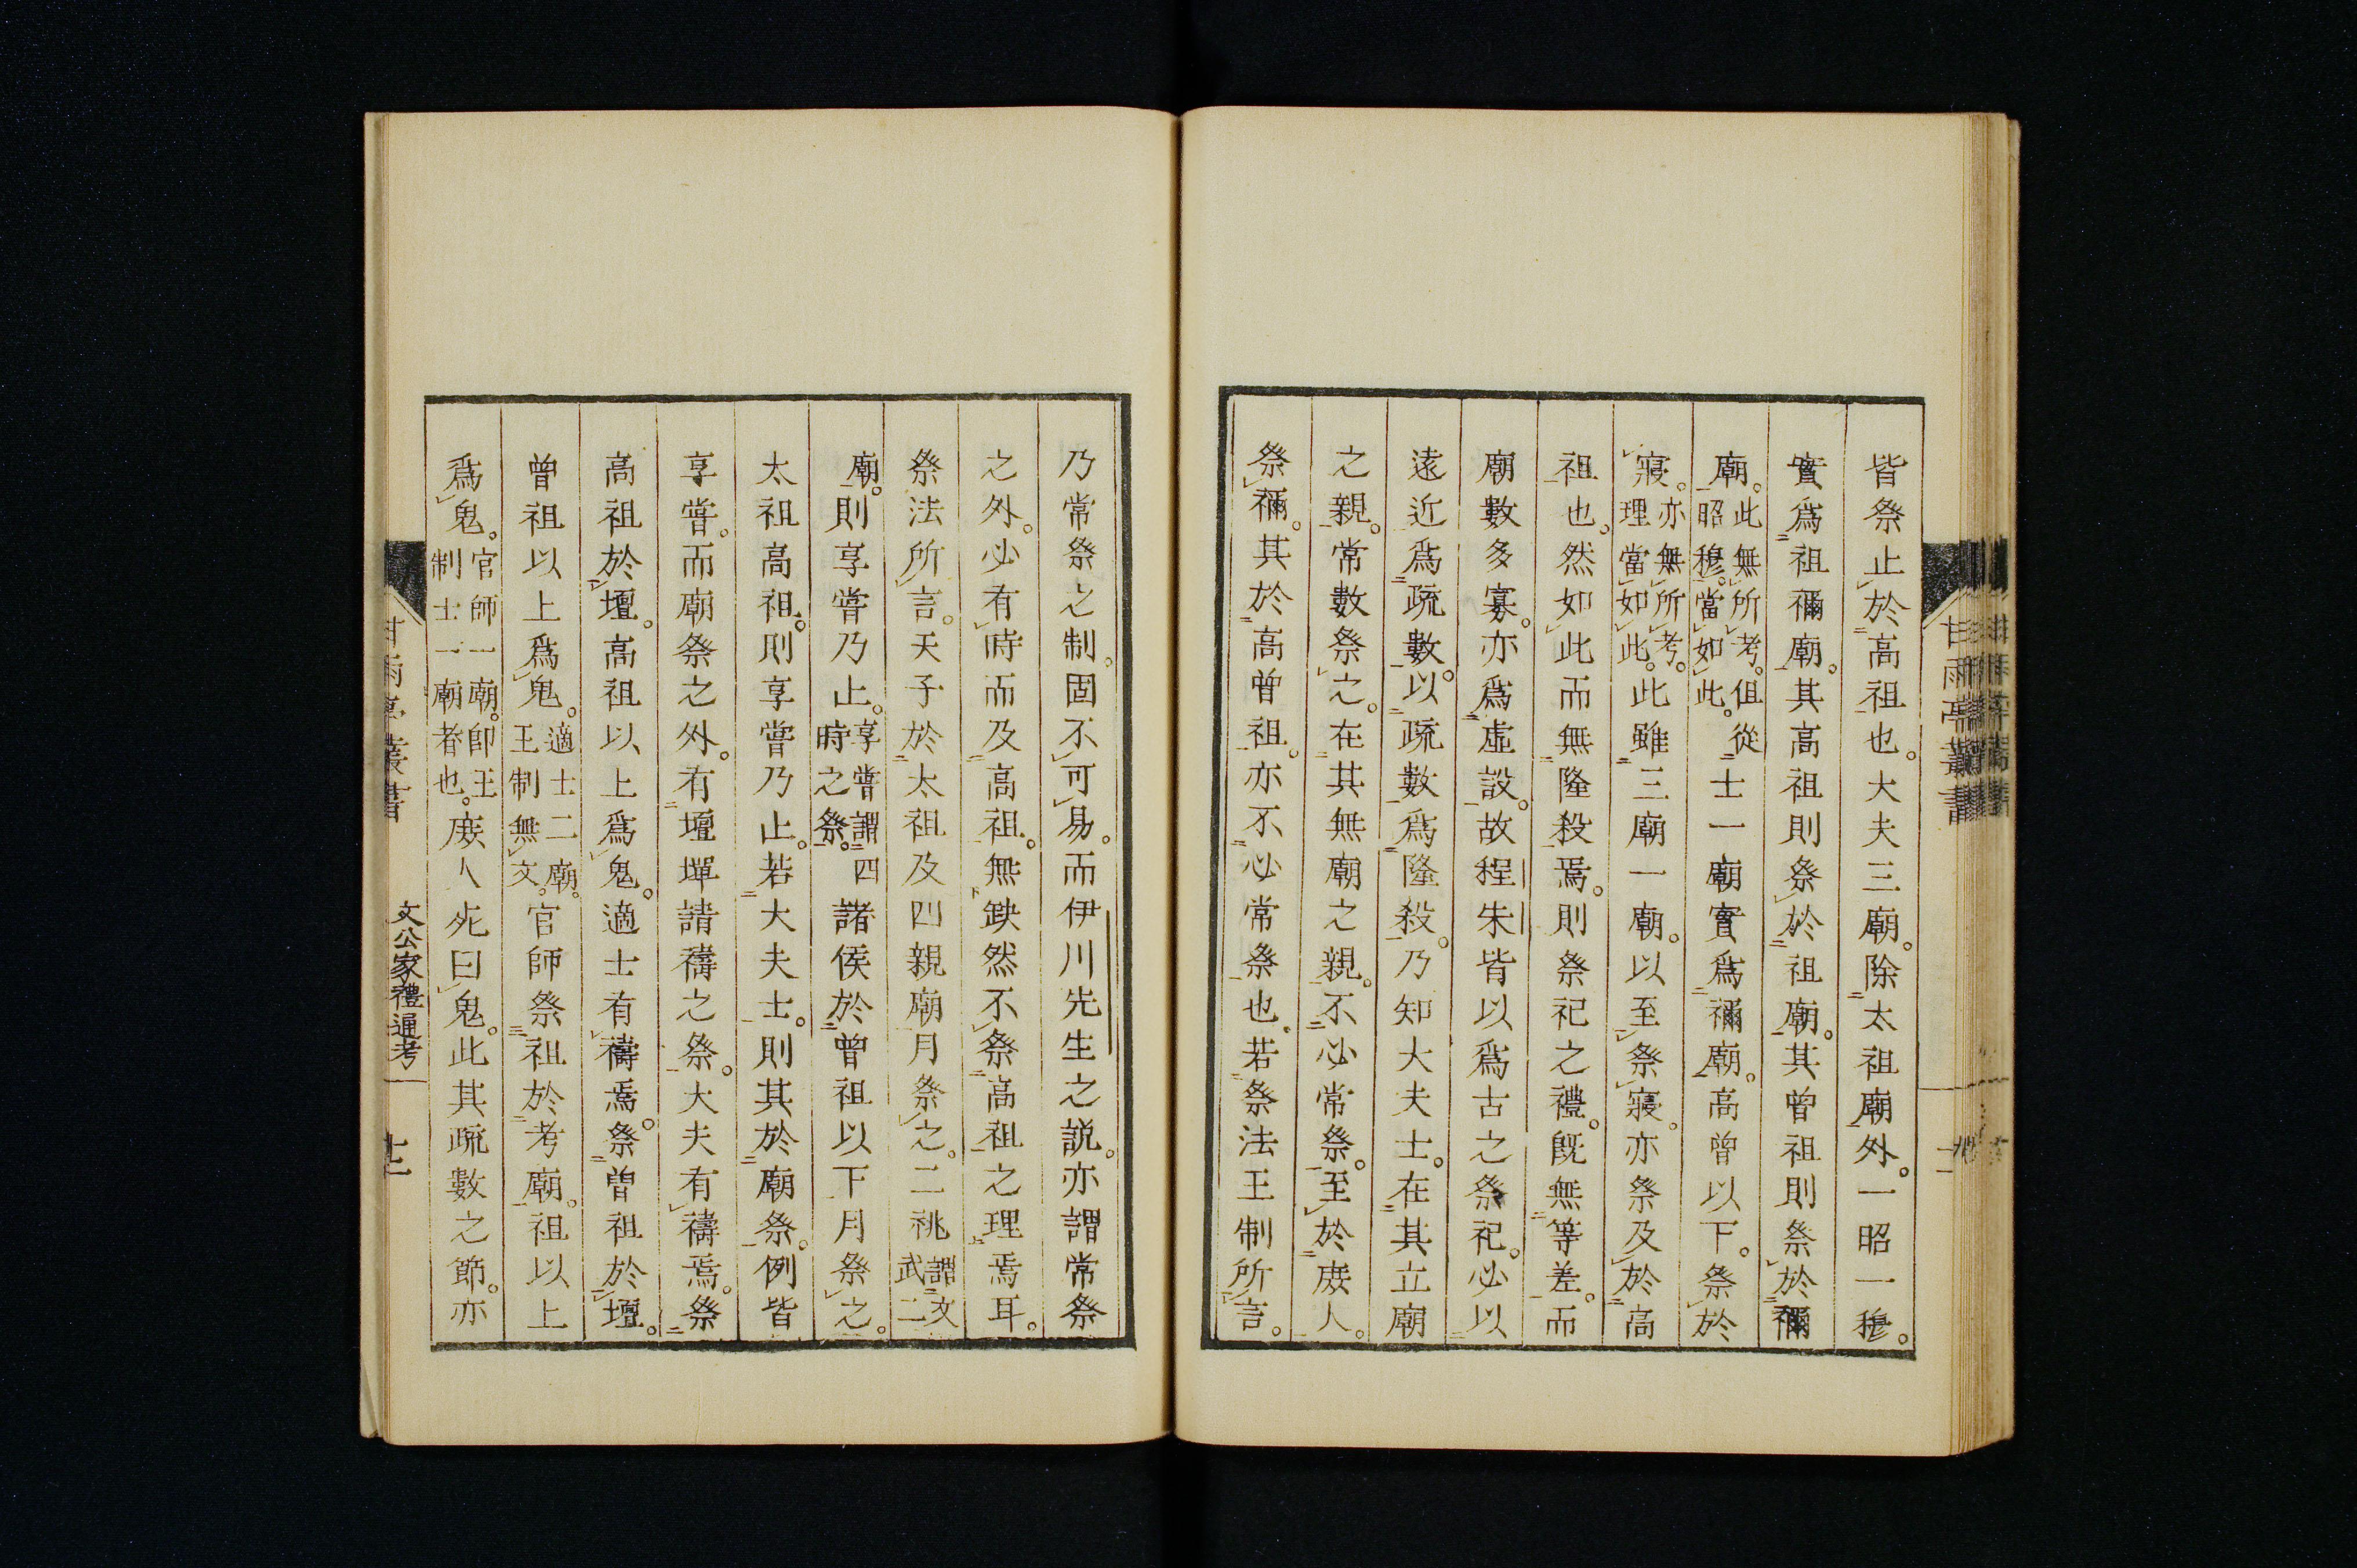 皆祭止於高祖也。大夫三廟。除太祖廟外。一昭一穆。
實爲祖禰廟。其高祖則祭於祖廟。其曾祖則祭於禰
廟。此無所考。但從昭穆。當如此。士一廟實爲禰廟。高曾以下。祭於
寢。亦無所考。理當如此。此雖三廟一廟。以至祭寢。亦祭及於高
祖也。然如此而無隆殺焉。則祭祀之禮。旣無等差。而
廟數多寡。亦爲虛設。故程朱皆以爲古之祭祀。必以
遠近爲疏數。以疏數爲隆殺。乃知大夫士。在其立廟
之親。常數祭之。在其無廟之親。不必常祭。至於庶人。
祭禰。其於高曾祖。亦不必常祭也。若祭法王制所言。
甘雨亭叢書
乃常祭之制。固不可易。而伊川先生之説。亦謂常祭
之外。必有時而及高祖。無缺然不祭高祖之理焉耳。
祭法所言。天子於太祖及四親廟月祭之。二祧謂文武二
廟。則享嘗乃止。享嘗謂四時之祭。諸侯於曾祖以下月祭之。
太祖高祖。則享嘗乃止。若大夫士。則其於廟祭。例皆
享嘗。而廟祭之外。有壇墠請禱之祭。大夫有禱焉。祭
高祖於壇。高祖以上爲鬼。適士有禱焉。祭曾祖於壇。
曾祖以上爲鬼。適士二廟。王制無文。官師祭祖於考廟。祖以上
爲鬼。官師一廟。卽王制士一廟者也。庶人死曰鬼。此其疏數之節。亦
甘雨亭叢書
文公家禮通考
十一